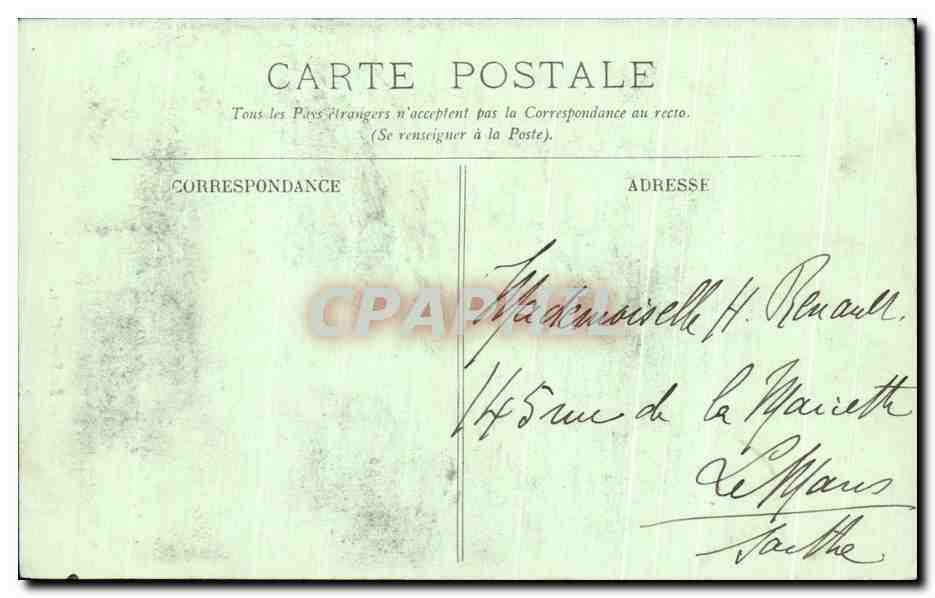 CARTE POSTALE
Tous les Pays étrangers n'acceptent pas la Correspondance au recto.
(Se renseigner à la Poste).
CORRESPONDANCE
ADRESSE
CPAPHIL
Mademoiselle H. Renault.
145 rue de la Mariette
Le Mans
Sarthe